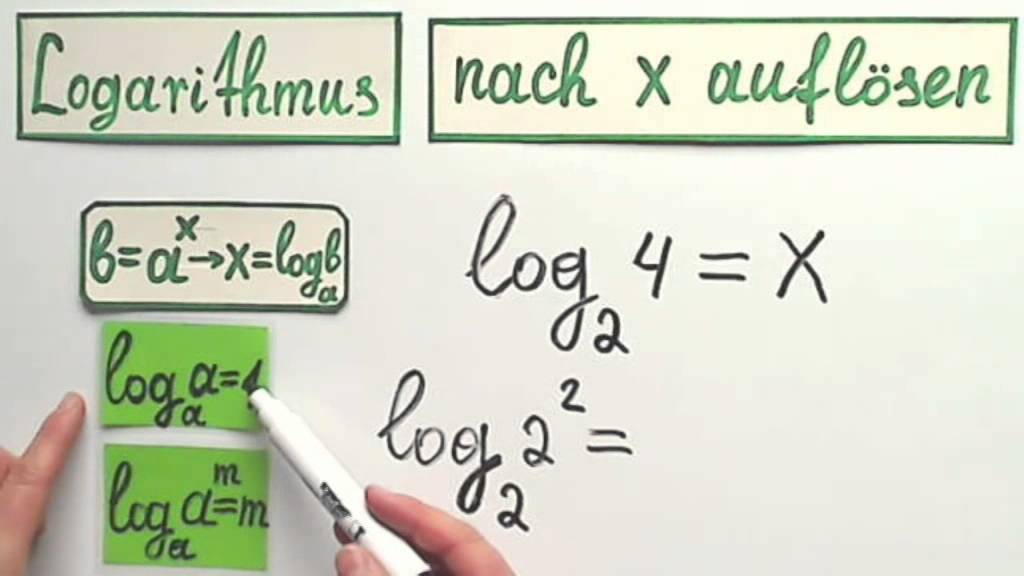 Logarithmus
nach x auflösen
b=aˣ→x=logₐb
log₂ 4 = x
logₐ a=1
log₂ 2² =
logₐ aᵐ=m